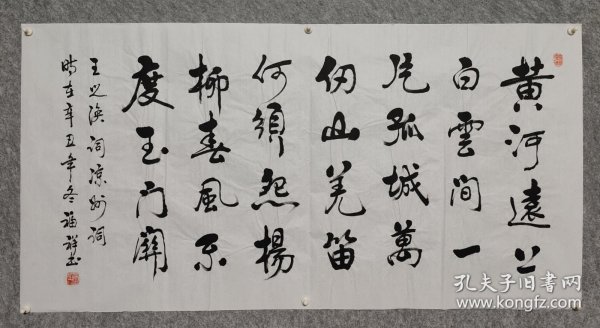 黄河遠上
白雲間一
片孤城萬
仞山羌笛
何須怨楊
柳春風不
度玉门關
王之渙詞涼州詞
時在辛丑年冬福祥书
孔夫子旧书网
www.kongfz.com